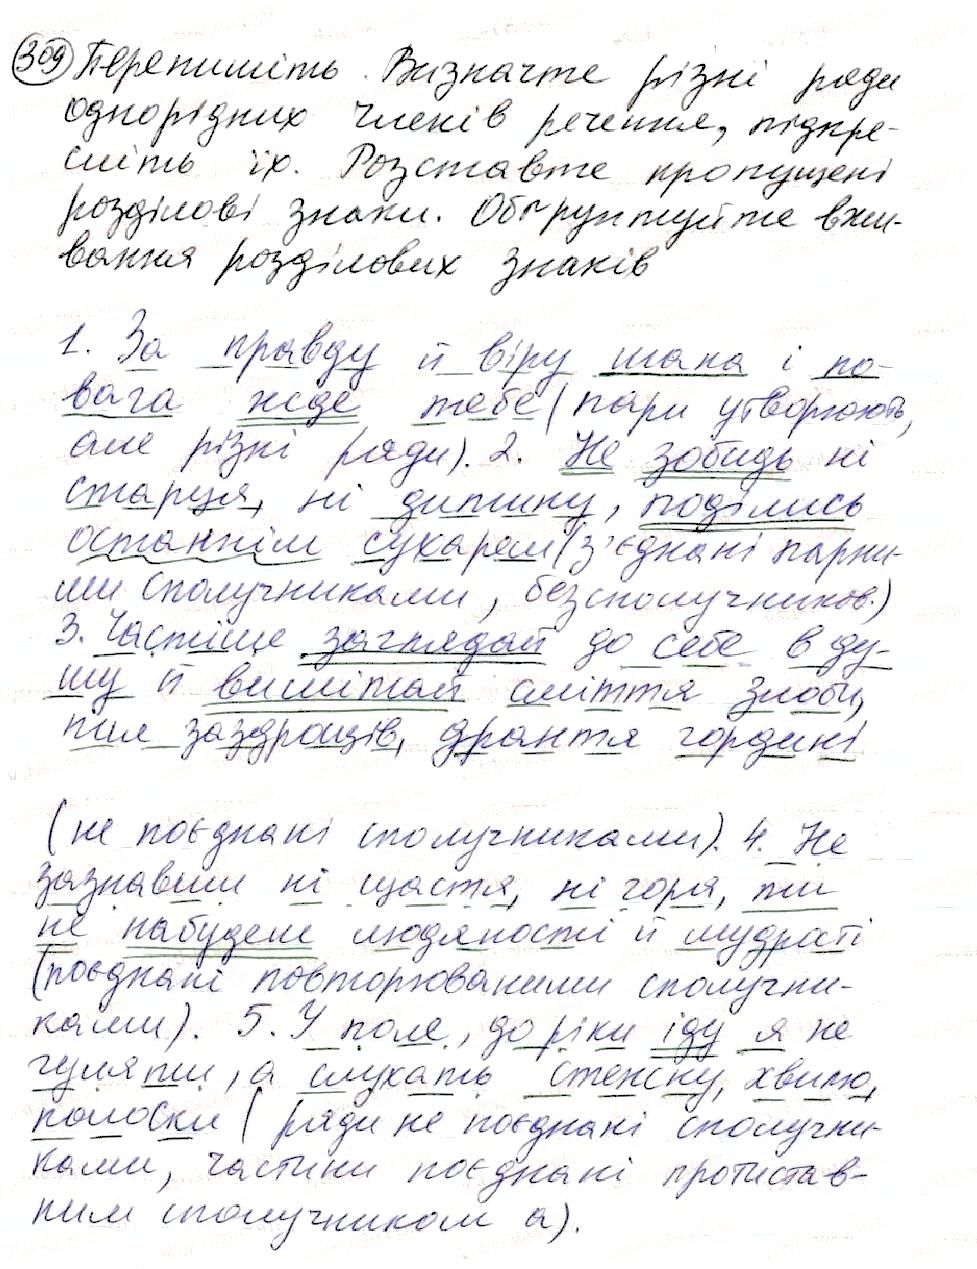 309 Перепишіть. Визначте різні ряди
однорідних членів речення, підкре-
сліть їх. Розставте пропущені
розділові знаки. Обґрунтуйте вжи-
вання розділових знаків
1. За правду й віру шана і по-
вага жде тебе (пари утворюють,
але різні ряди). 2. Не зобидь ні
старця, ні дитину, поділись
останнім сухарем (з'єднані парни-
ми сполучниками, безсполучников.)
3. Частіше заглядай до себе в ду-
шу й вимітай сміття злоби,
пил заздрощів, дрантя гордині
(не поєднані сполучниками). 4. Не
зазнавши ні щастя, ні горя, ти
не набудеш людяності й мудрості
(поєднані повторюваними сполучни-
ками). 5. У поле, до ріки іду я не
гуляти, а слухать стежку, хвилю,
колоски (ряди не поєднані сполучни-
ками, частини поєднані протистав-
ним сполучником а).